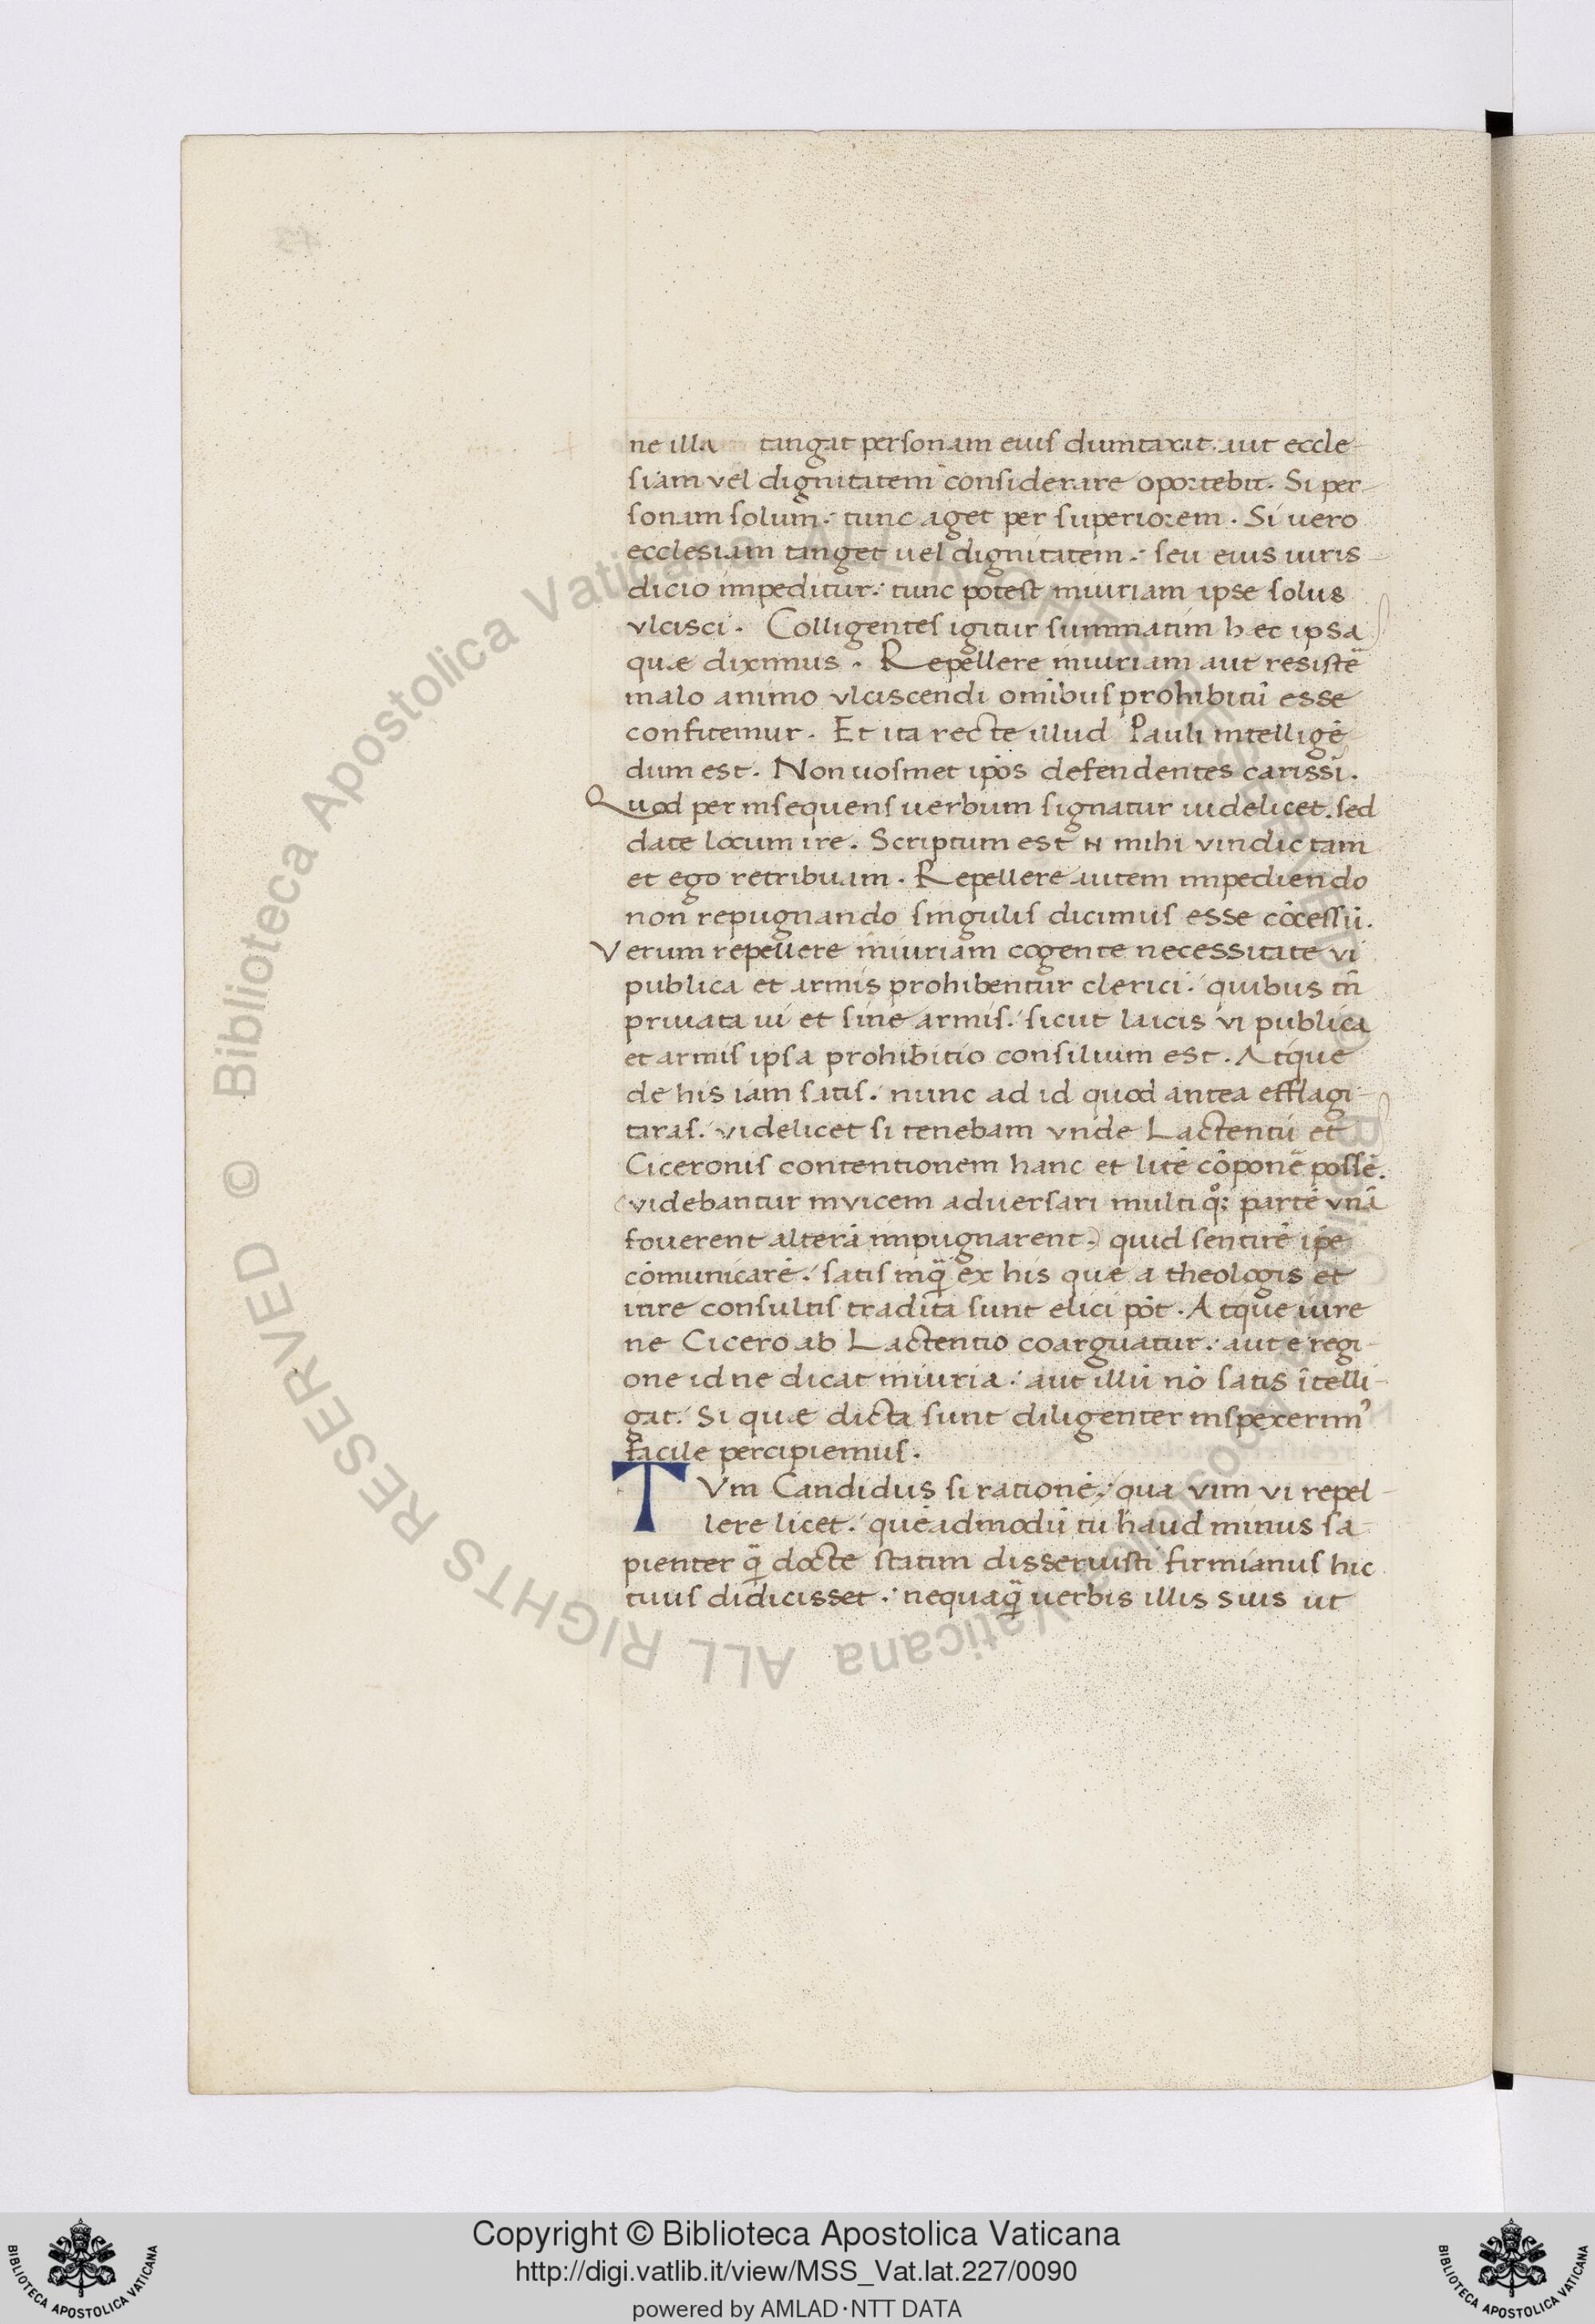 ne illa tangat personam eius dumtaxat. aut eccle-
siam vel dignitatem considerare oportebit. Si per-
sonam solum. tunc aget per superiorem. Si uero
ecclesiam tanget uel dignitatem. seu eius iuris-
dicio impeditur. tunc potest iniuriam ipse solus
vlcisci. Colligentes igitur summatim hec ipsa
quæ diximus. Repellere iniuriam aut resistē
malo animo vlciscendi omībus prohibitū esse
confitemur. Et ita recte illud Pauli intelligē
dum est. Non uosmet ipōs defendentes carissī.
Quod per insequens uerbum signatur uidelicet. sed
date locum ire. Scriptum est N mihi vindictam
et ego retribuam. Repellere autem impediendo
non repugnando singulis dicimus esse cōcessū.
Verum repellere iniuriam cogente necessitate vi
publica et armis prohibentur clerici. quibus tn̄
priuata ui et sine armis. sicut laicis vi publica
et armis ipsa prohibitio consilium est. Atque
de his iam satis. nunc ad id quod antea efflagi-
taras. videlicet si tenebam vnde Lactentii et
Ciceronis contentionem hanc et litē cōponē possē.
(videbantur invicem adversari multi qꝫ partē vnā
fouerent alterā impugnarent.) quid sentirē ipē
cōmunicarē. satis inq̄ ex his que a theologis et
iure consultis tradita sunt elici pōt. Atque iure
ne Cicero ab Lactentio coarguatur. aut e regi-
one id ne dicat iniuria. aut illū nō satis ītelli-
gat. Si quæ dicta sunt diligenter inspexerim'
facile percipiemus.
TVm Candidus si rationē. qua vim vi repel-
lere licet. quēadmodū tu haud minus sa-
pienter q̄ docte statim disseruisti firmianus hic
tuus didicisset. nequaq̄ uerbis illis suis ut
© Biblioteca Apostolica Vaticana ALL RIGHTS RESERVED
© Biblioteca Apostolica Vaticana ALL RIGHTS RESERVED
Copyright © Biblioteca Apostolica Vaticana
http://digi.vatlib.it/view/MSS_Vat.lat.227/0090
powered by AMLAD·NTT DATA
BIBLIOTECA APOSTOLICA VATICANA
BIBLIOTECA APOSTOLICA VATICANA